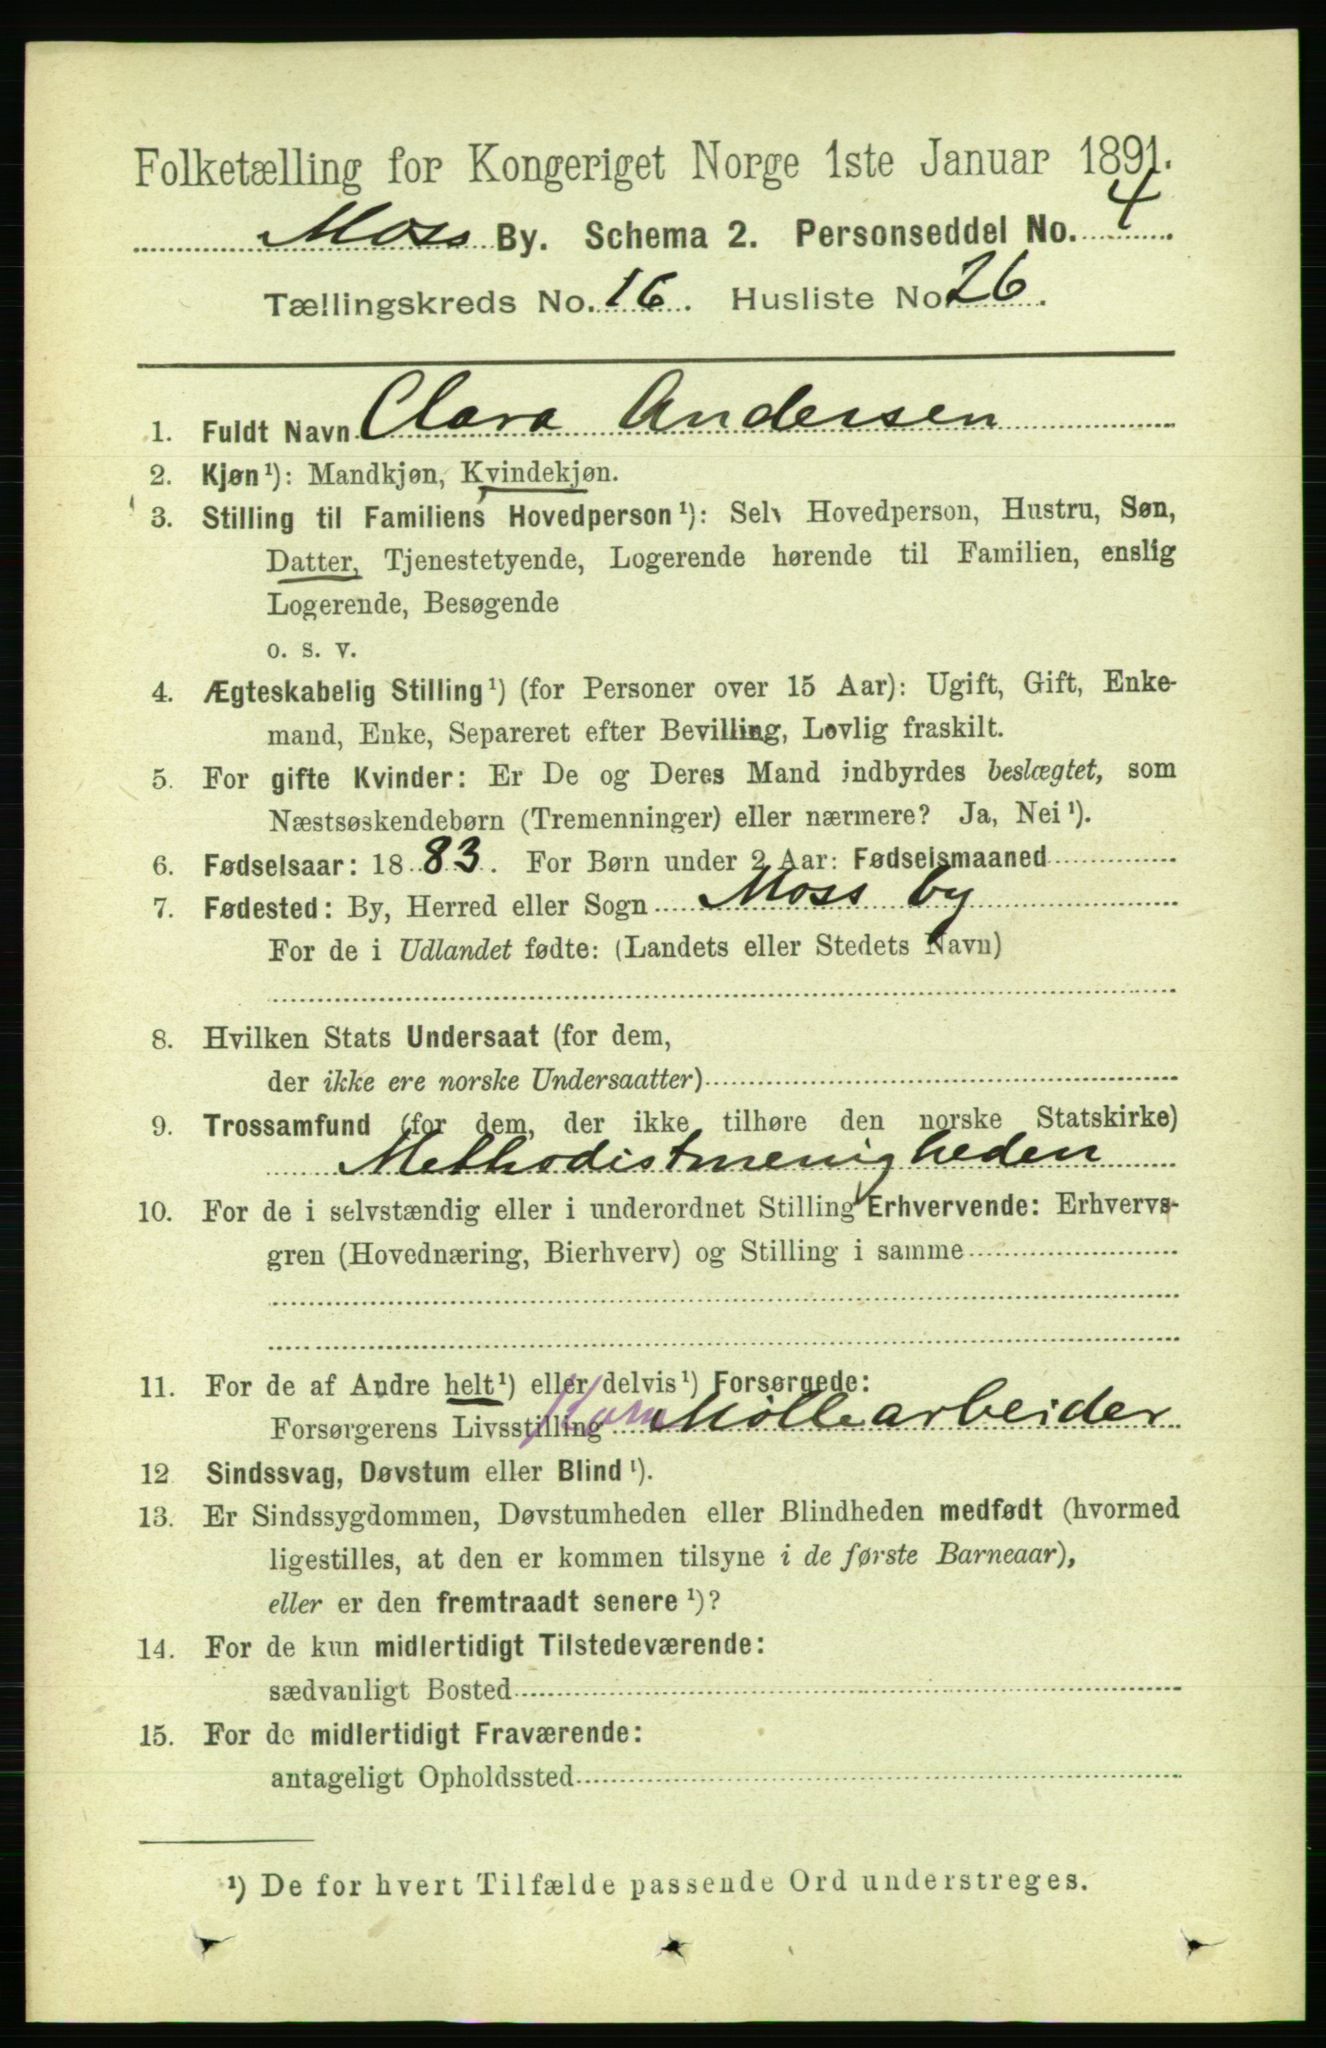 Folketælling for Kongeriget Norge 1ste Januar 1891.
Moss By. Schema 2. Personseddel No. 4
Tællingskreds No. 16. Husliste No 26.
1. Fuldt Navn Clara Andersen
2. Kjøn¹): Mandkjøn, Kvindekjøn.
3. Stilling til Familiens Hovedperson¹): Selv Hovedperson, Hustru, Søn,
Datter, Tjenestetyende, Logerende hørende til Familien, enslig
Logerende, Besøgende
o. s. v.
4. Ægteskabelig Stilling¹) (for Personer over 15 Aar): Ugift, Gift, Enke-
mand, Enke, Separeret efter Bevilling, Lovlig fraskilt.
5. For gifte Kvinder: Er De og Deres Mand indbyrdes beslægtet, som
Næstsøskendebørn (Tremenninger) eller nærmere? Ja, Nei¹).
6. Fødselsaar: 1883. For Børn under 2 Aar: Fødselsmaaned
7. Fødested: By, Herred eller Sogn Moss by
For de i Udlandet fødte: (Landets eller Stedets Navn)
8. Hvilken Stats Undersaat (for dem,
der ikke ere norske Undersaatter)
9. Trossamfund (for dem, der ikke tilhøre den norske Statskirke)
Methodistmenigheden
10. For de i selvstændig eller i underordnet Stilling Erhvervende: Erhvervs-
gren (Hovednæring, Bierhverv) og Stilling i samme
11. For de af Andre helt¹) eller delvis¹) Forsørgede:
Forsørgerens Livsstilling Korn Møllearbeider
12 Sindssvag, Døvstum eller Blind¹).
13. Er Sindssygdommen, Døvstumheden eller Blindheden medfødt (hvormed
ligestilles, at den er kommen tilsyne i de første Barneaar),
eller er den fremtraadt senere¹)?
14. For de kun midlertidigt Tilstedeværende:
sædvanligt Bosted
15. For de midlertidigt Fraværende:
antageligt Opholdssted
¹) De for hvert Tilfælde passende Ord understreges.